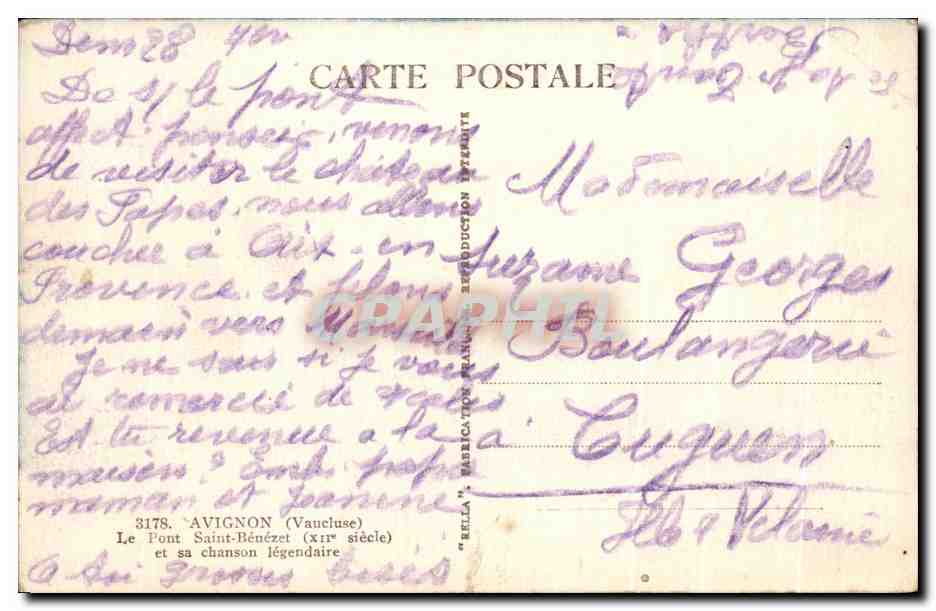 CARTE POSTALE
De s/ le pont
venons
de visiter le château
des Papes. nous allons
coucher à Aix-en
Provence et filons
demain vers
Je ne sais si je vous
ai remercié de
Est tu revenue a la
maison ? papa
maman et
3178. AVIGNON (Vaucluse)
Le Pont Saint-Bénézet (XIIe siècle)
et sa chanson légendaire
a toi grosses bises
"RELLA". FABRICATION FRANÇAISE. REPRODUCTION INTERDITE
Mademoiselle
Suzanne Georges
Boulangerie
à Cuguen
Ille & Vilaine
CPAPHIL